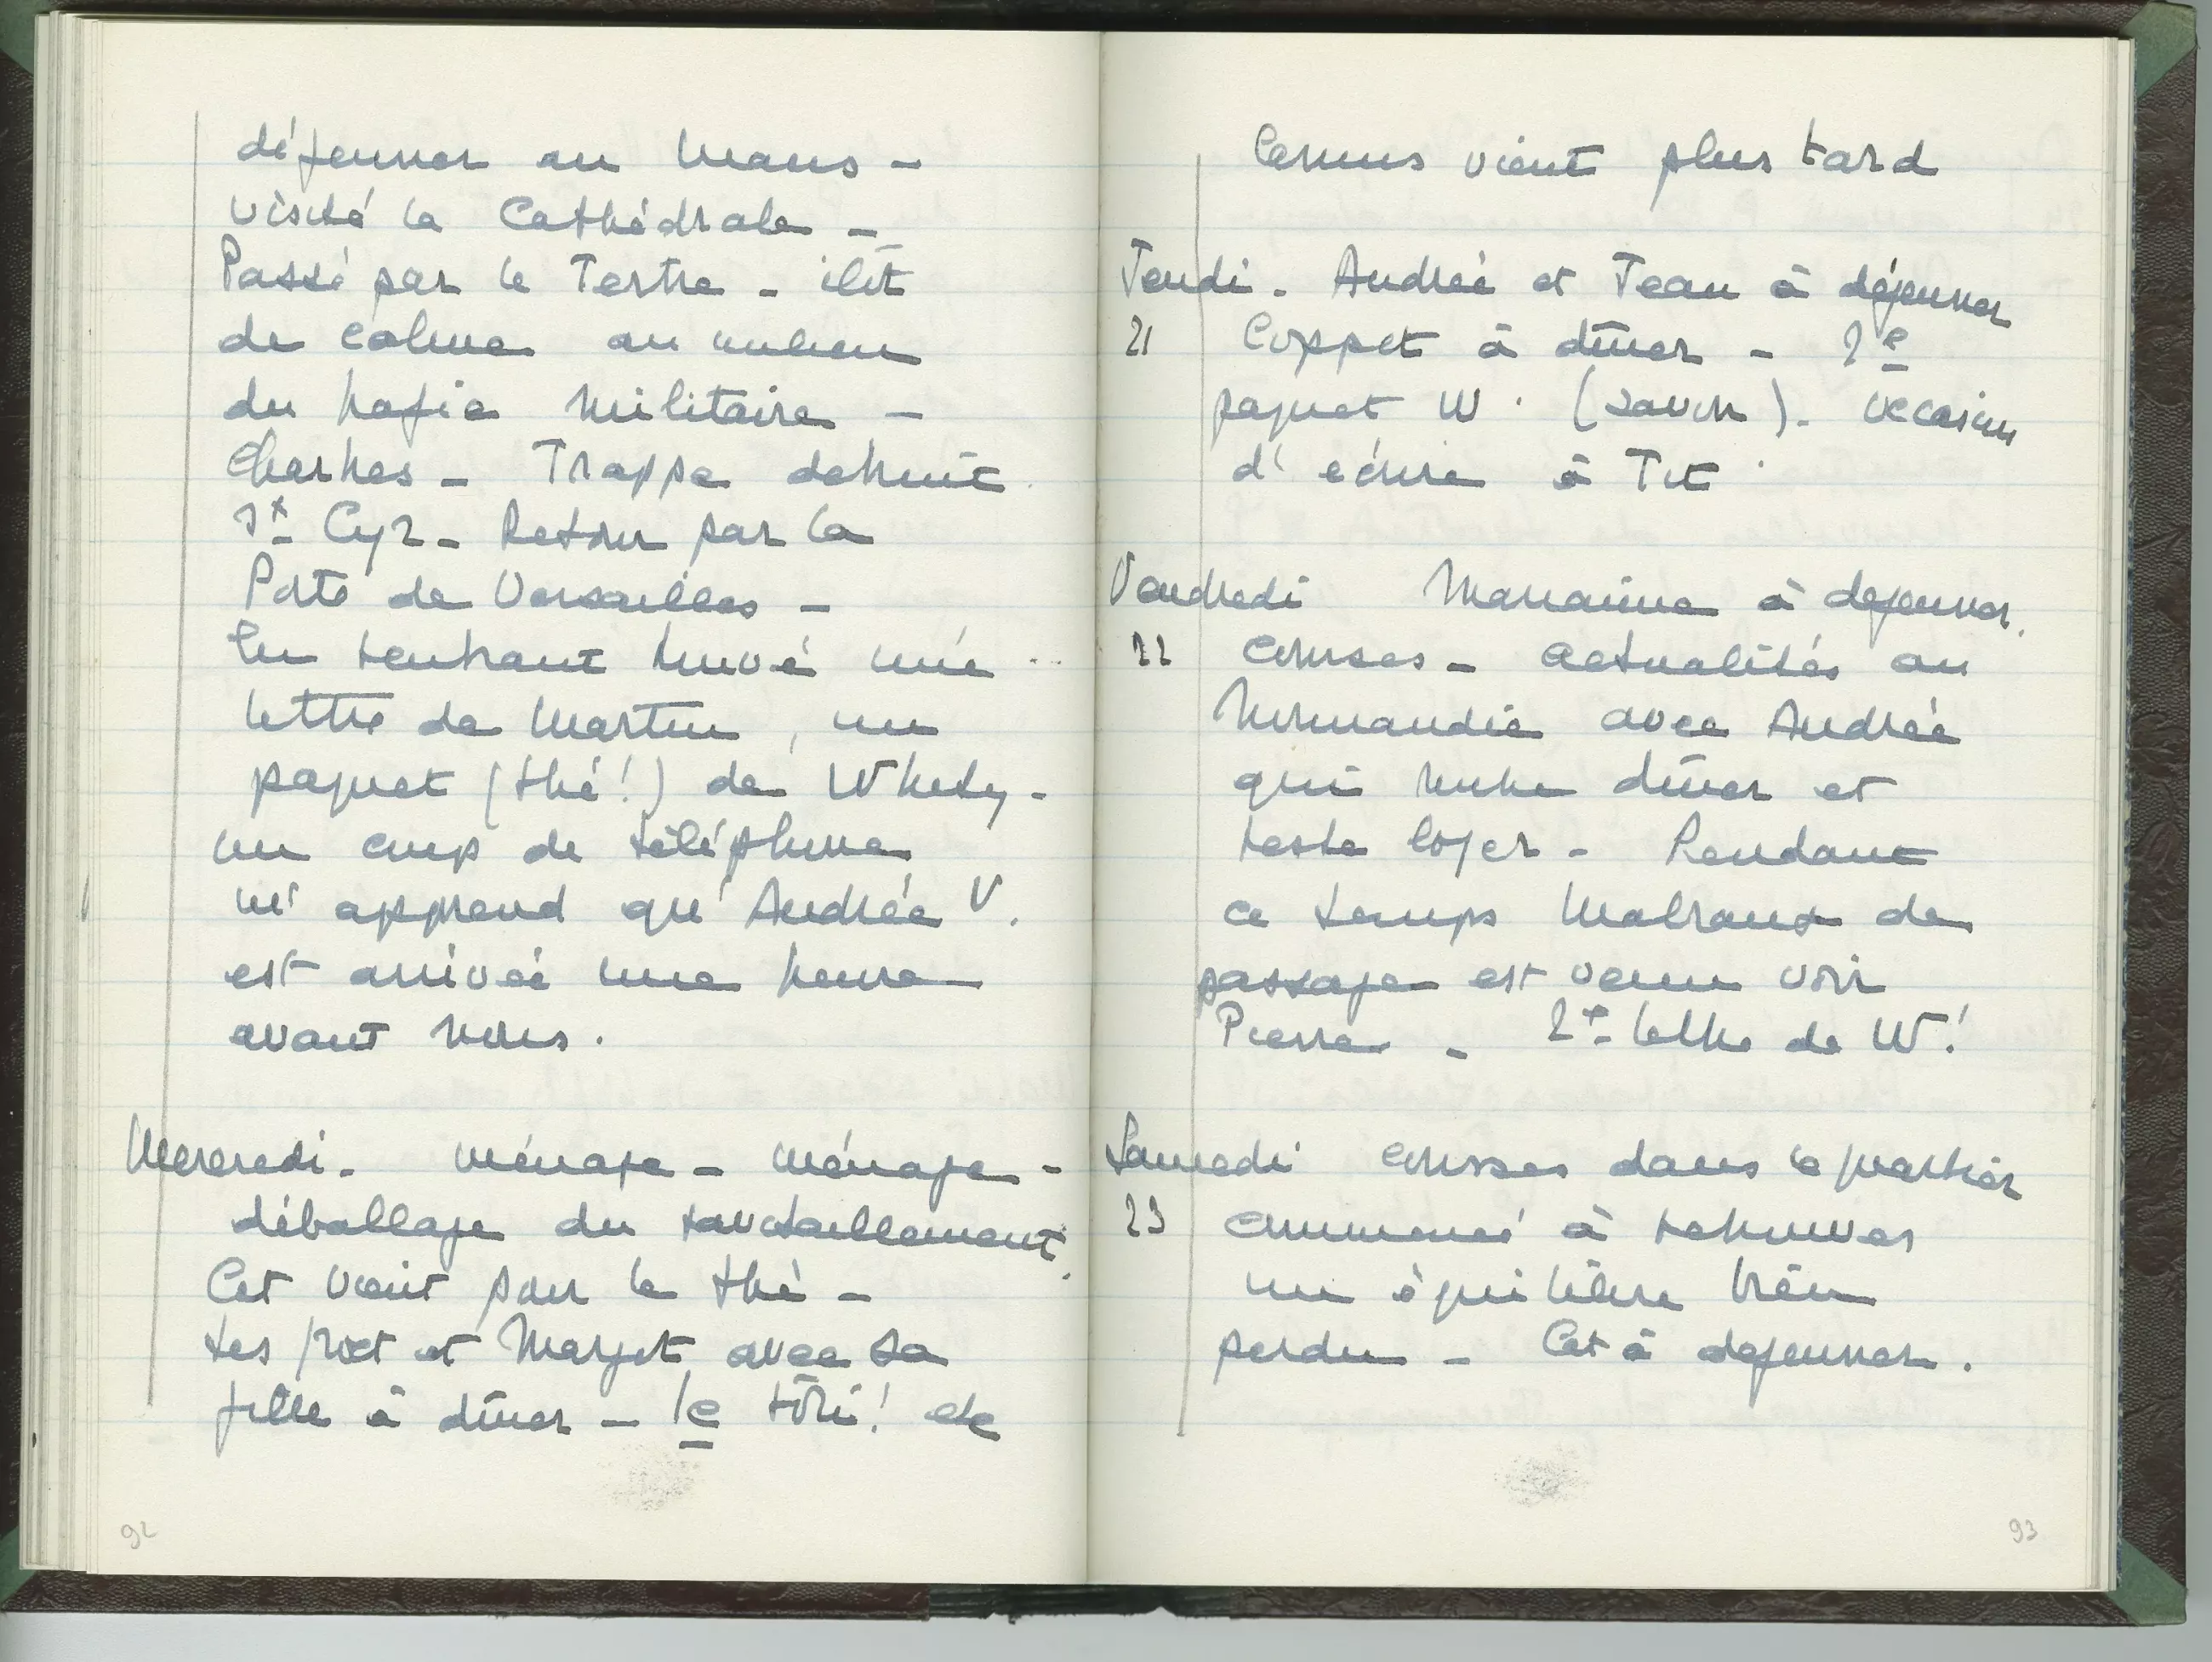 déjeuner au Mans -
visité la Cathédrale -
Passé par le Tertre - ilôt
de calme au milieu
du trafic militaire -
Chartres - Trappe detruit
St Cyr - Retour par la
Porte de Versailles -
En rentrant trouvé une
lettre de Martin, un
paquet (thé!) de Whity -
un coup de téléphone
m'apprend qu'Andrée V.
est arrivée une heure
avant nous.
Mercredi - ménage - ménage -
déballage du ravitaillement.
Cat vient pour le thé -
et Margot avec sa
fille à dîner - le rôti! etc
Camus vient plus tard
Jeudi - Andrée et Jean à déjeuner
21 Coppet à dîner - 2e
paquet W. (savon). Occasion
d'écrire à Tit.
Vendredi Marianne à dejeuner.
22 courses - actualités au
Normandie avec Andrée
qui rentre dîner et
reste loger - Pendant
ce temps Malraux de
passage est venu voir
Pierre - 2e lettre de W!
Samedi courses dans le quartier
23 commencé à retrouver
un équilibre bien
perdu - Cat à dejeuner.
92
93